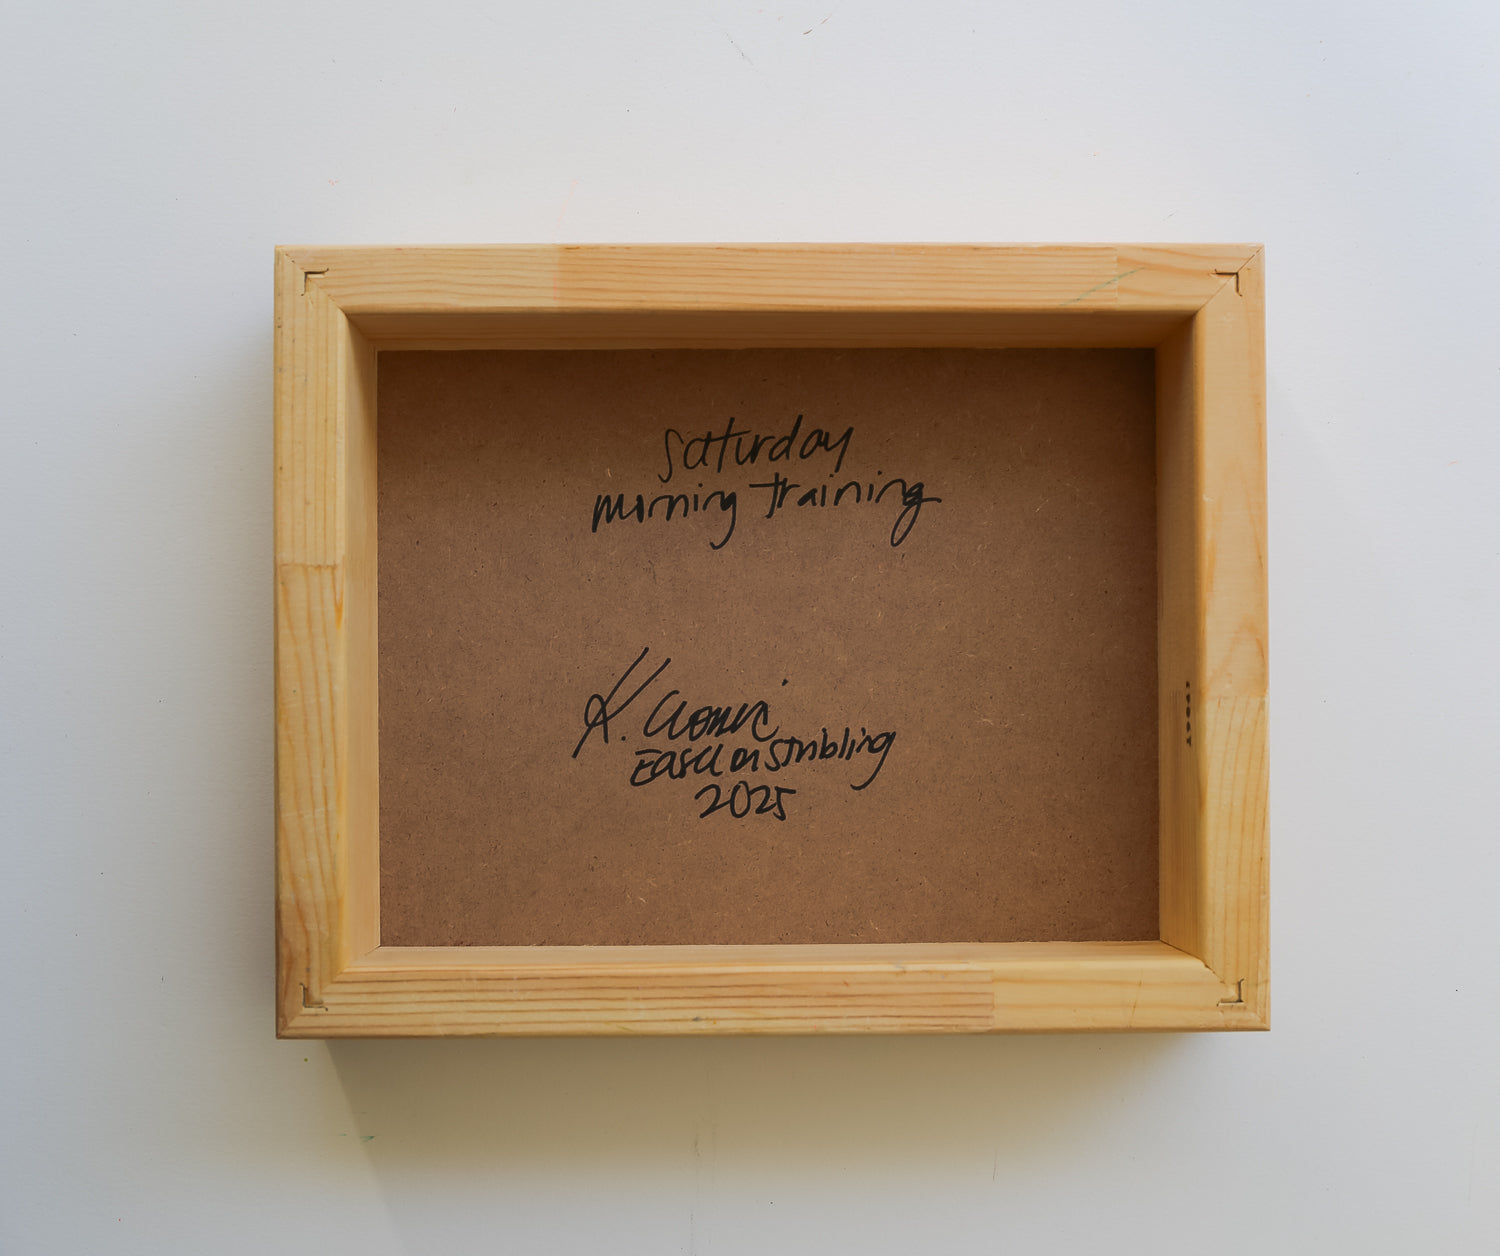 Saturday
morning Training
K.
Easel on Stribling
2025